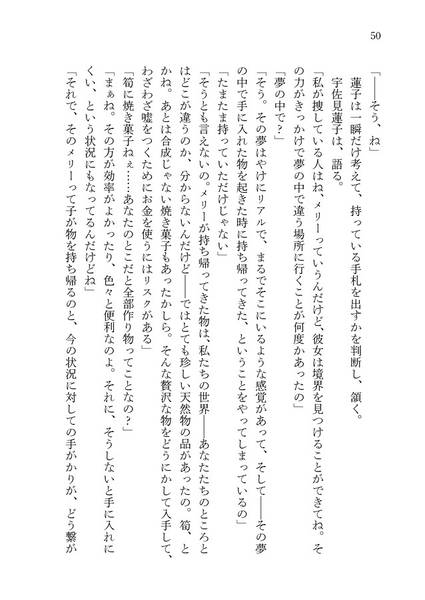 50
「――そう、ね」
蓮子は一瞬だけ考えて、持っている手札を出すかを判断し、頷く。
宇佐見蓮子は、語る。
「私が捜している人はね、メリーっていうんだけど、彼女は境界を見つけることができてね。そ
の力がきっかけで夢の中で違う場所に行くことが何度かあったの」
「夢の中で？」
「そう。その夢はやけにリアルで、まるでそこにいるような感覚があって、そして――その夢
の中で手に入れた物を起きた時に持ち帰ってきた、ということをやってしまったの」
「たまたま持っていただけじゃない」
「そうとも言えないの。メリーが持ち帰ってきた物は、私たちの世界――あなたたちのところと
はどこが違うのか、分からないんだけど――ではとても珍しい天然物の品があったの。筍、と
かね。あとは合成じゃない焼き菓子もあったかしら。そんな贅沢な物をどうにかして入手して、
わざわざ嘘をつくためにお金を使うにはリスクがある」
「筍に焼き菓子ねぇ……あなたのとこだと全部作り物ってことなの？」
「まぁね。その方が効率がよかったり、色々と便利なのよ。それに、そうしないと手に入れに
くい、という状況にもなってるんだけどね」
「それで、そのメリーって子が物を持ち帰るのと、今の状況に対しての手がかりが、どう繋が